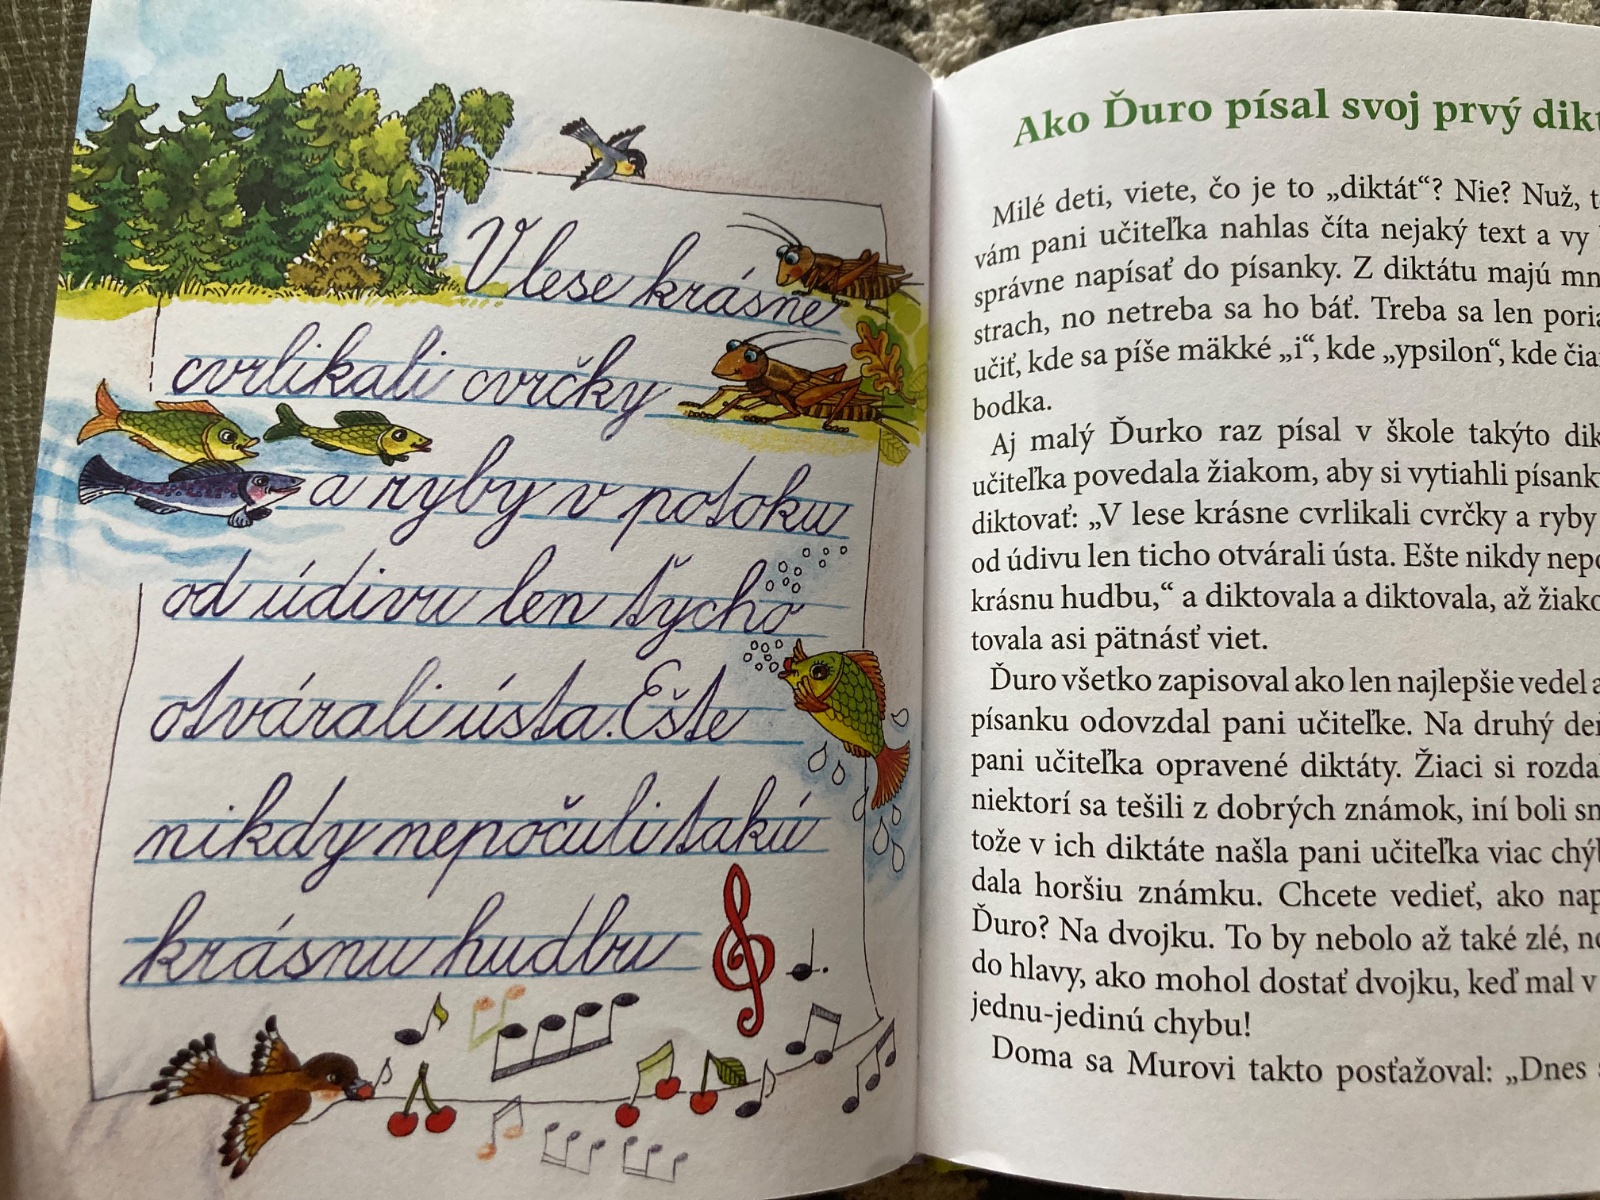 V lese krásne
cvrlikali cvrčky
a ryby v potoku
od údivu len ťycho
otvárali ústa. Ešte
nikdy nepočuli takú
krásnu hudbu
Ako Ďuro písal svoj prvý
Milé deti, viete, čo je to „diktát“? Nie? Nuž,
vám pani učiteľka nahlas číta nejaký text a vy
správne napísať do písanky. Z diktátu majú
strach, no netreba sa ho báť. Treba sa len
učiť, kde sa píše mäkké „i“, kde „ypsilon“, kde
bodka.
Aj malý Ďurko raz písal v škole takýto
učiteľka povedala žiakom, aby si vytiahli
diktovať: „V lese krásne cvrlikali cvrčky a ryby
od údivu len ticho otvárali ústa. Ešte nikdy
krásnu hudbu,“ a diktovala a diktovala, až
tovala asi pätnásť viet.
Ďuro všetko zapisoval ako len najlepšie vedel a
písanku odovzdal pani učiteľke. Na druhý
pani učiteľka opravené diktáty. Žiaci si
niektorí sa tešili z dobrých známok, iní boli
tože v ich diktáte našla pani učiteľka viac
dala horšiu známku. Chcete vedieť, ako
Ďuro? Na dvojku. To by nebolo až také zlé,
do hlavy, ako mohol dostať dvojku, keď mal v
jednu-jedinú chybu!
Doma sa Murovi takto posťažoval: „Dnes